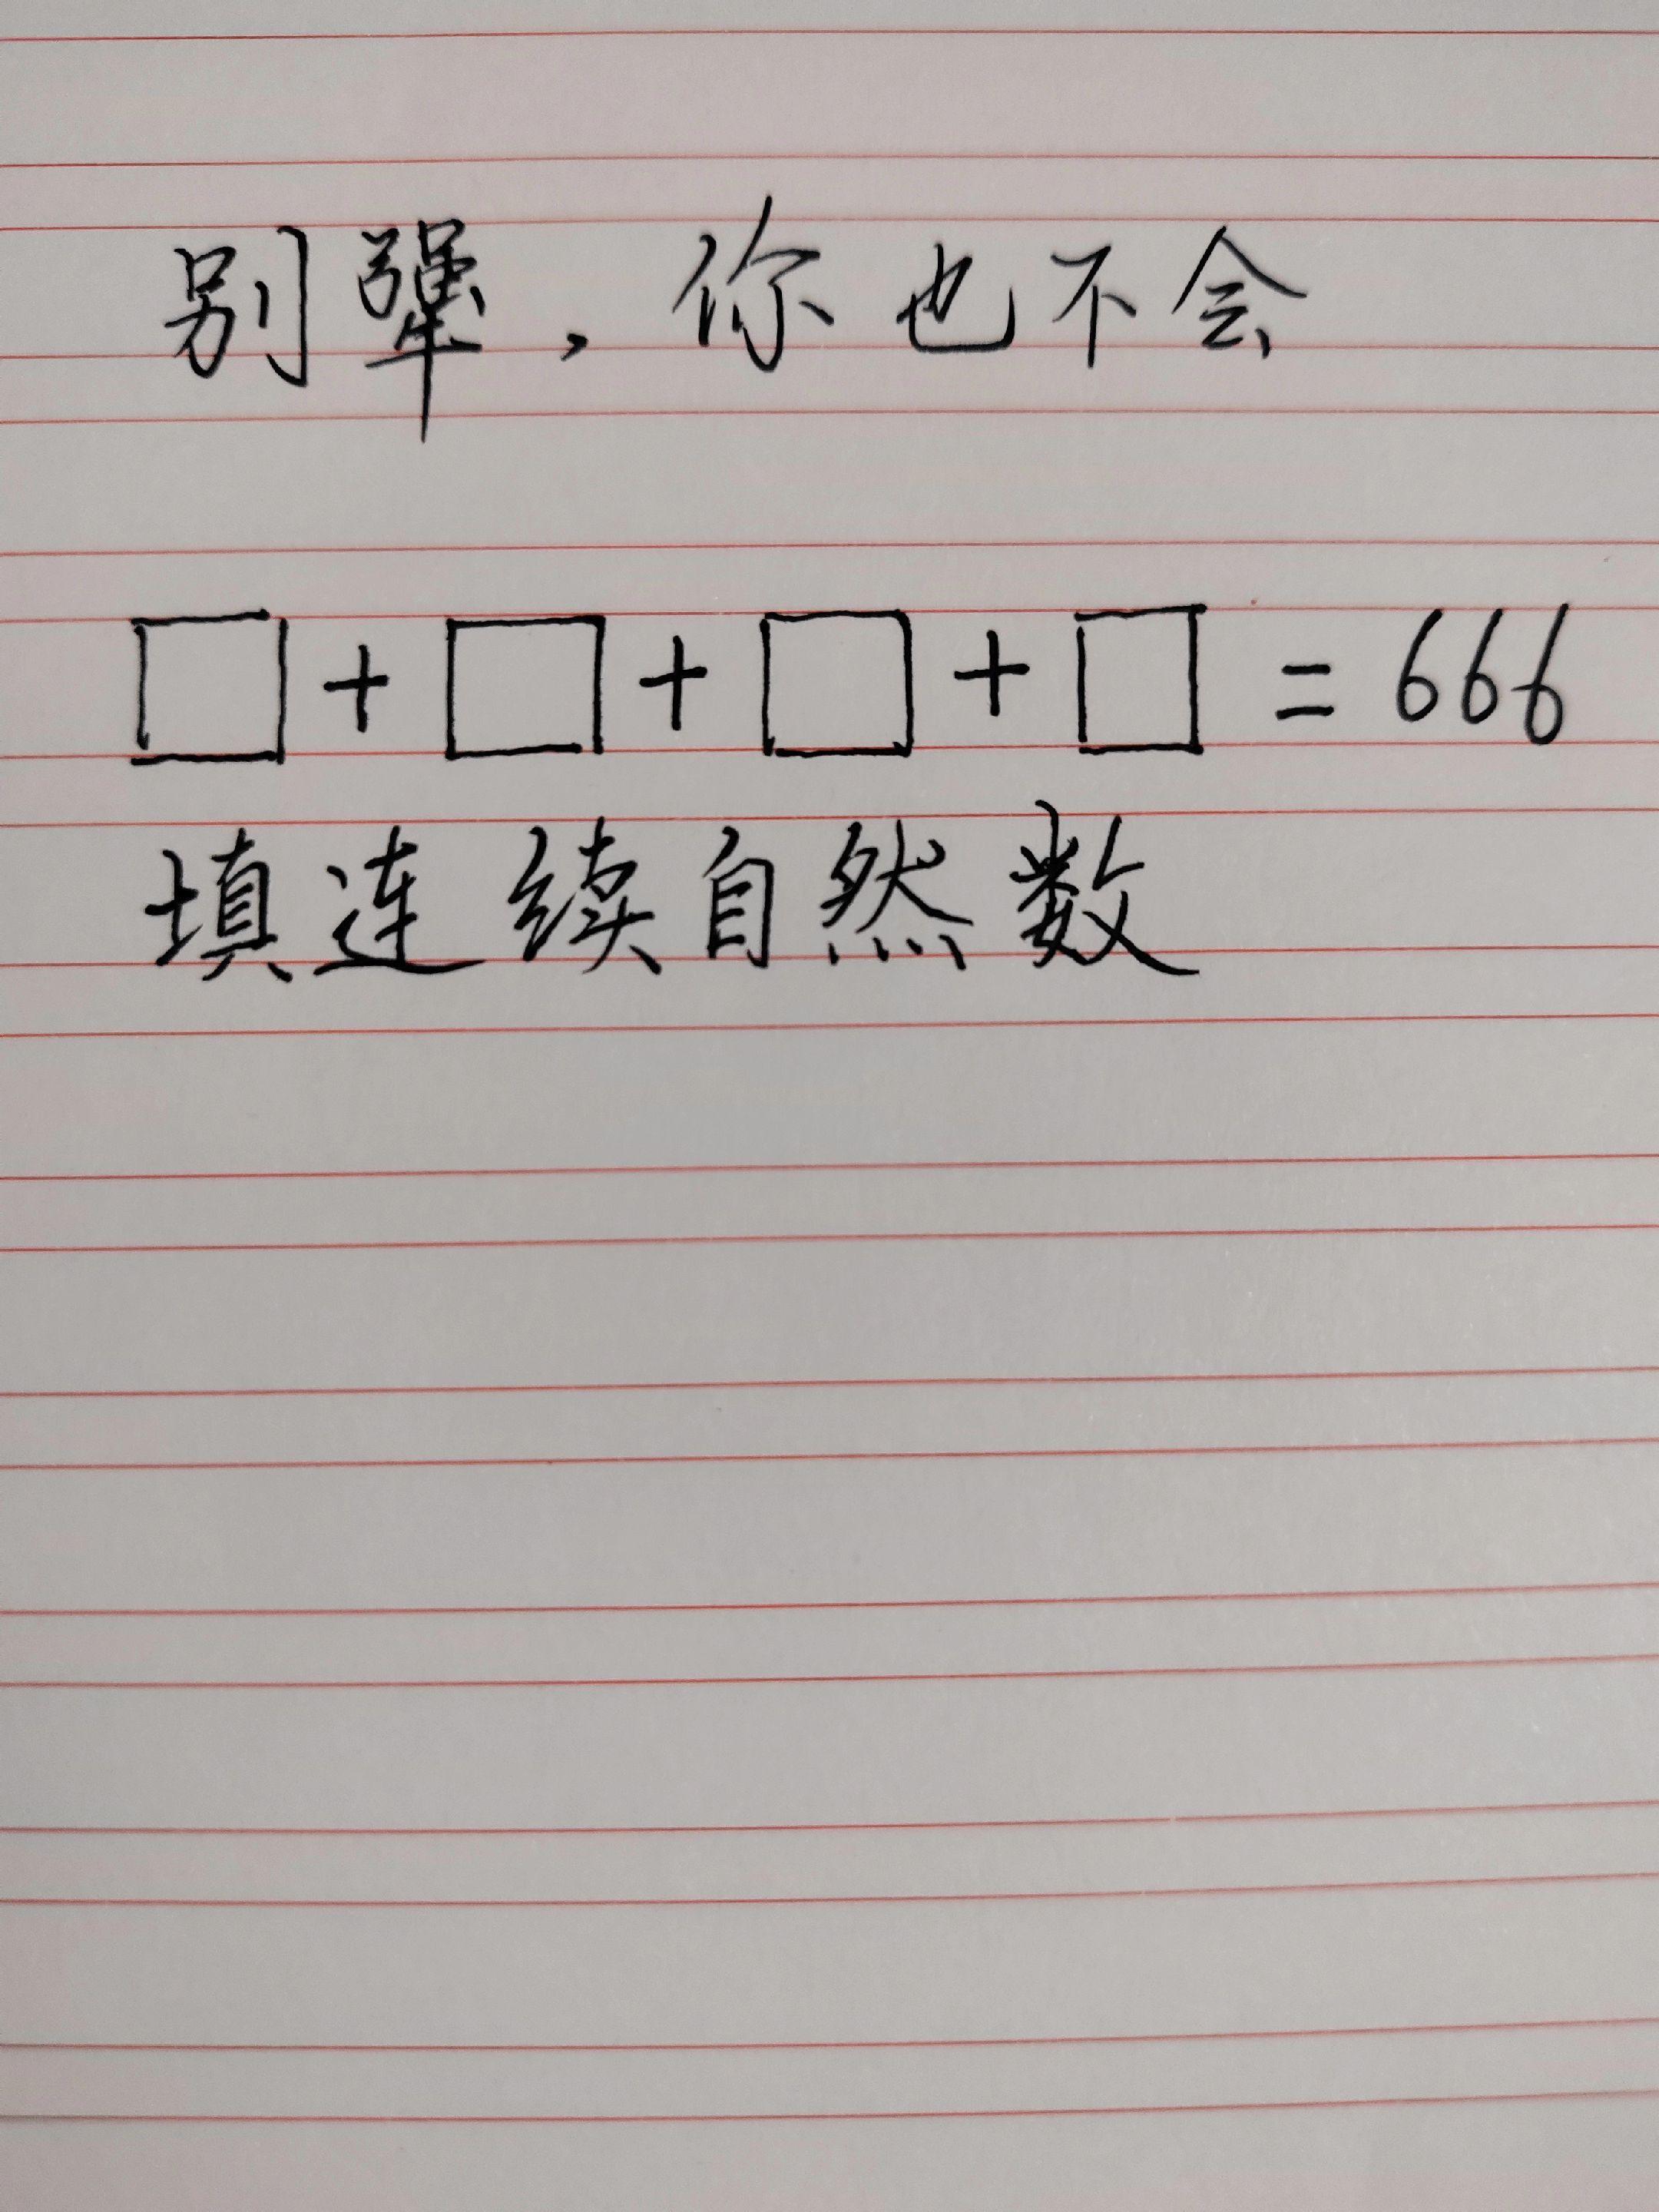 别犟，你也不会
□+□+□+□=666
填连续自然数